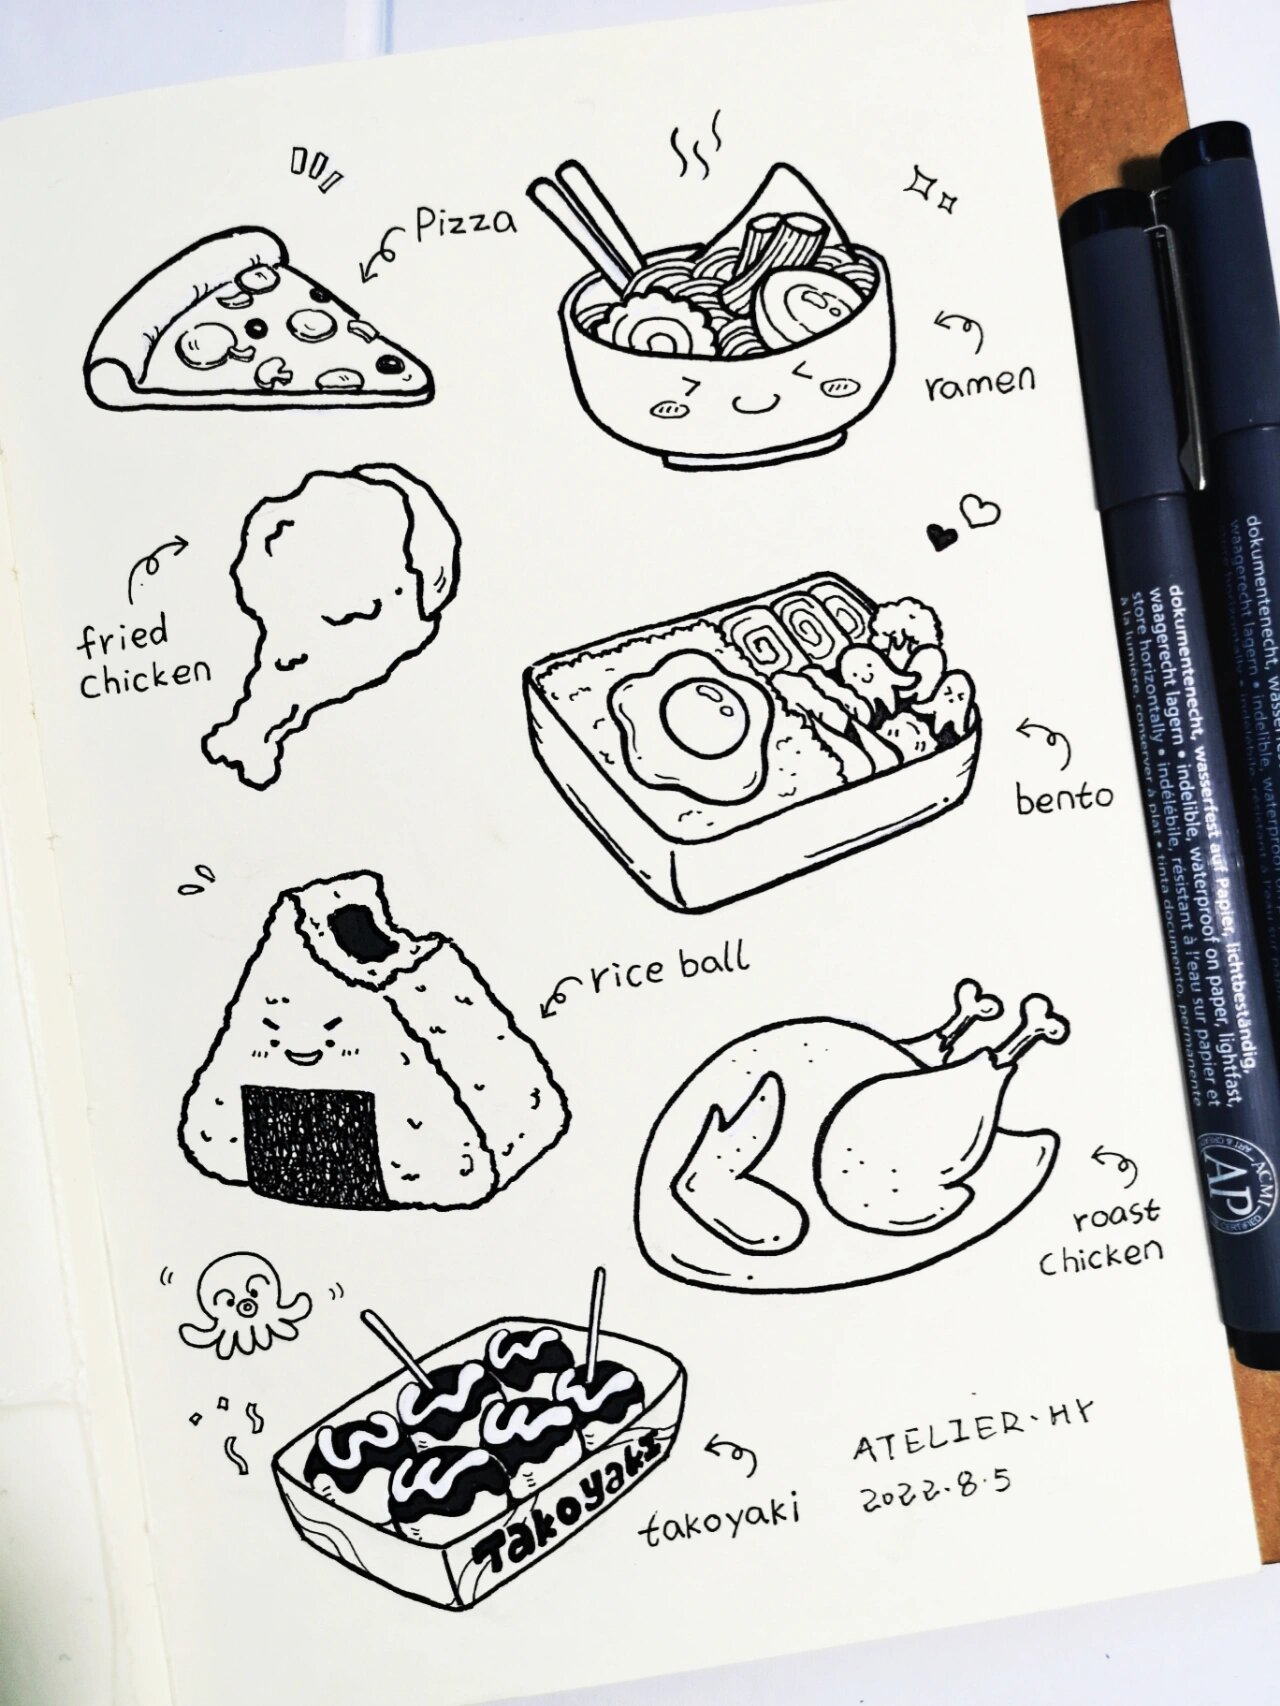 Pizza
ramen
fried
chicken
bento
rice ball
roast
chicken
Takoyaki
takoyaki
ATELIER·HY
2022.8.5
dokumentenecht, wasserfest auf Papier, lichtbeständig,
waagerecht lagern • indelible, waterproof on paper, lightfast,
store horizontally • indélébile, résistant à l'eau sur papier et
à la lumière, conserver à plat • tinta documento, permanente
AP
dokumentenecht, wasser
waagerecht lagern • indelible, water